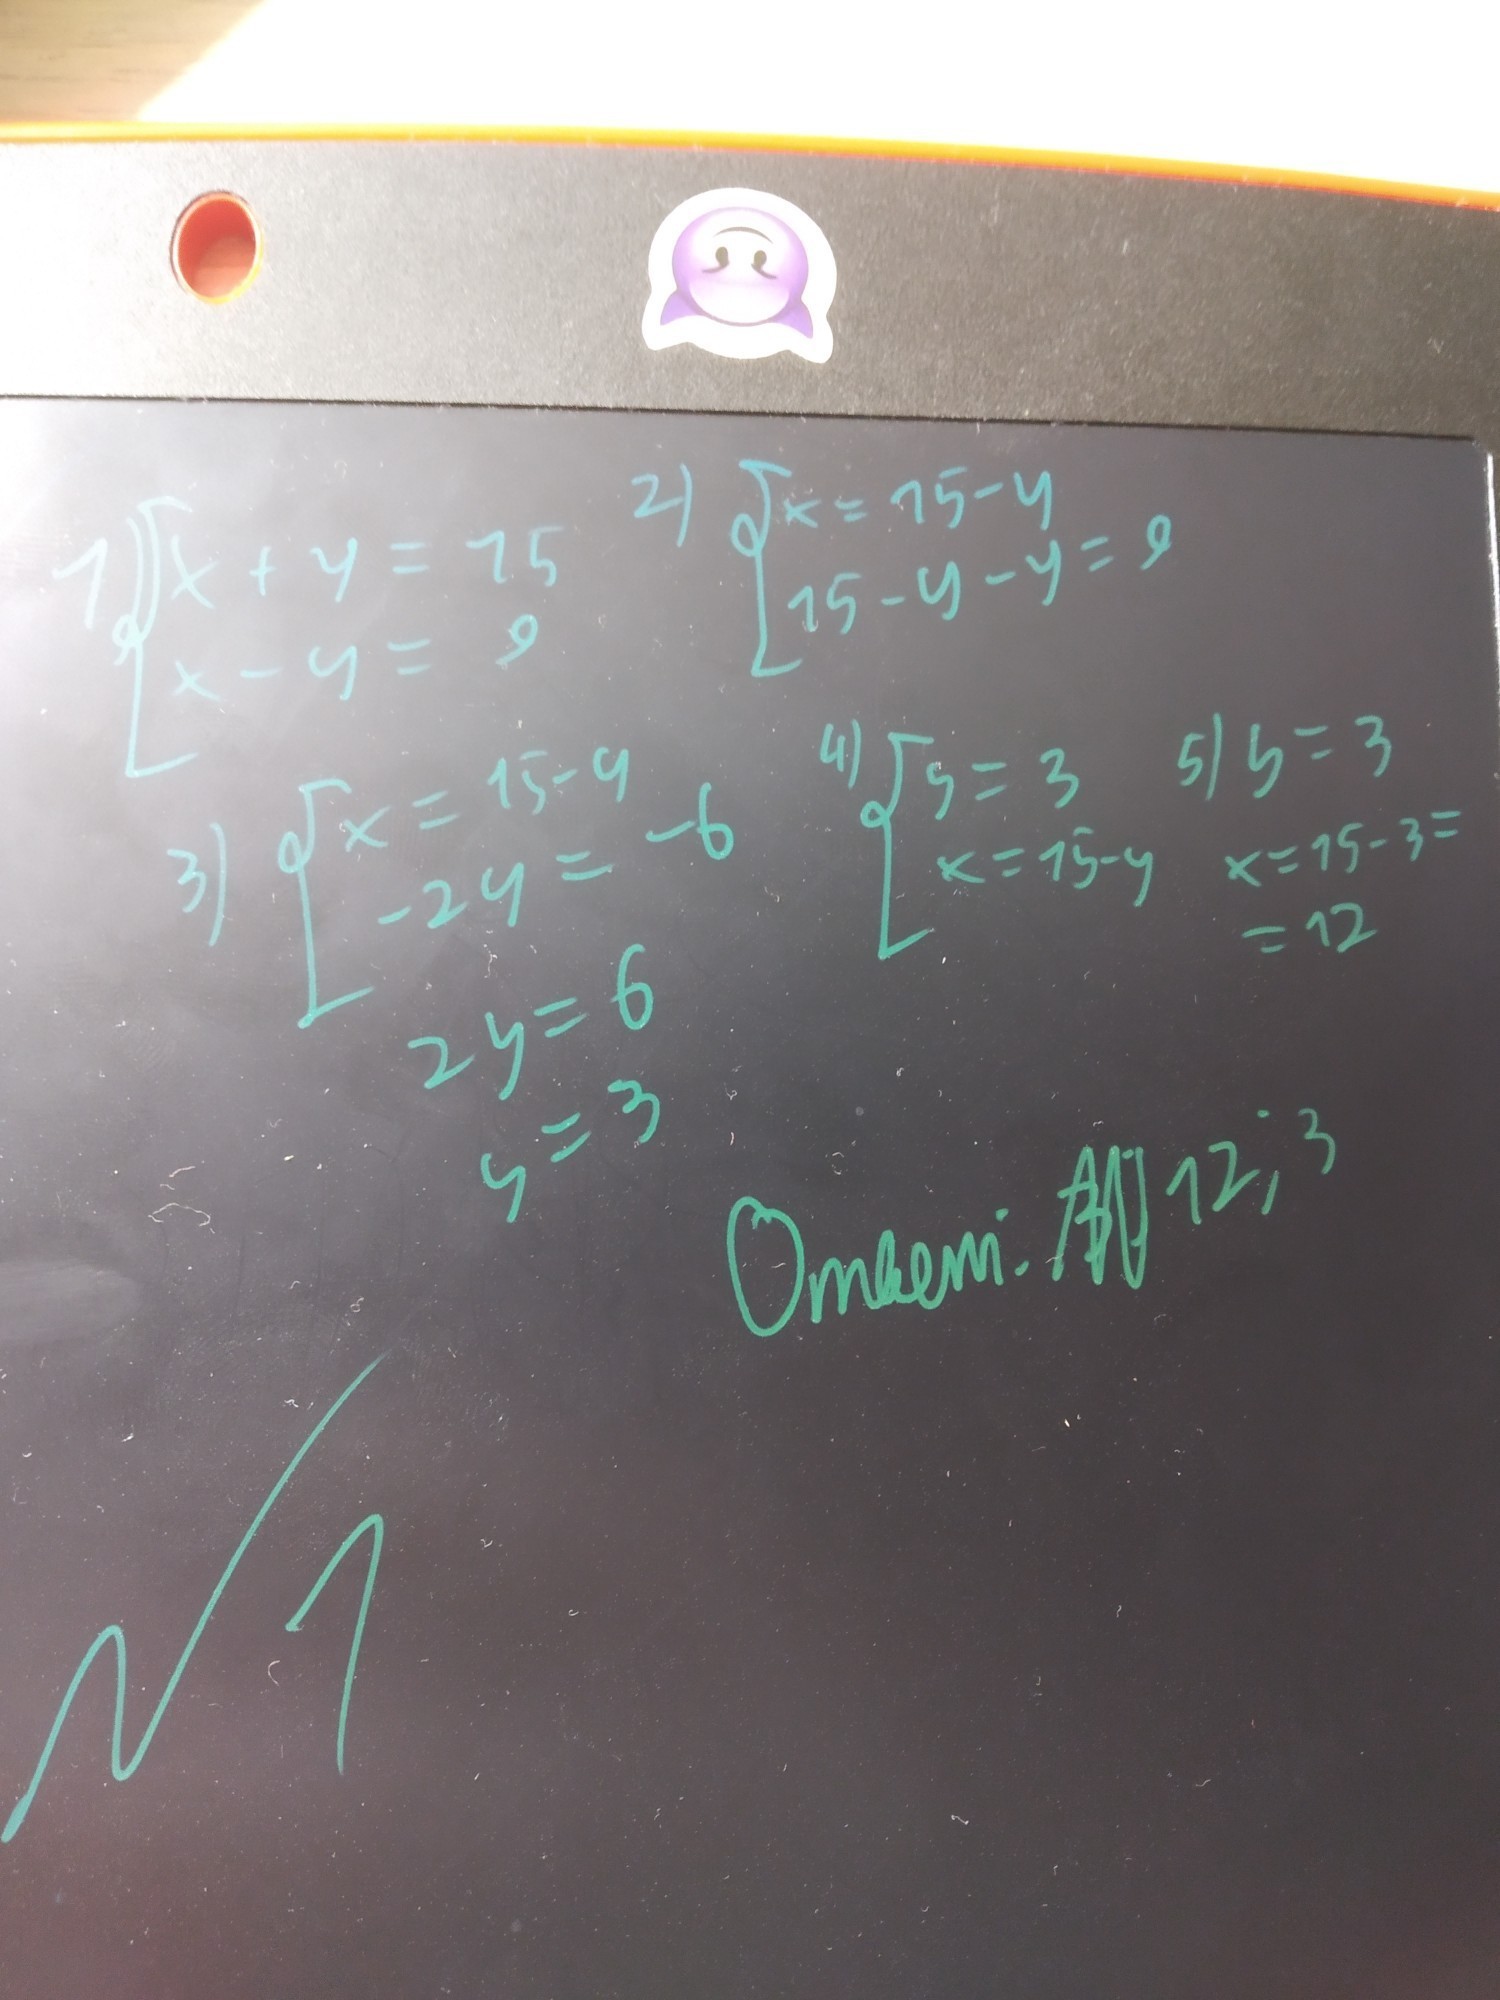 1) x + y = 15
x - y = 9
2) x = 15 - y
15 - y - y = 9
3) x = 15 - y
-2y = -6
2y = 6
y = 3
4) y = 3
x = 15 - y
5) y = 3
x = 15 - 3 =
= 12
Ответ. 12; 3
№1